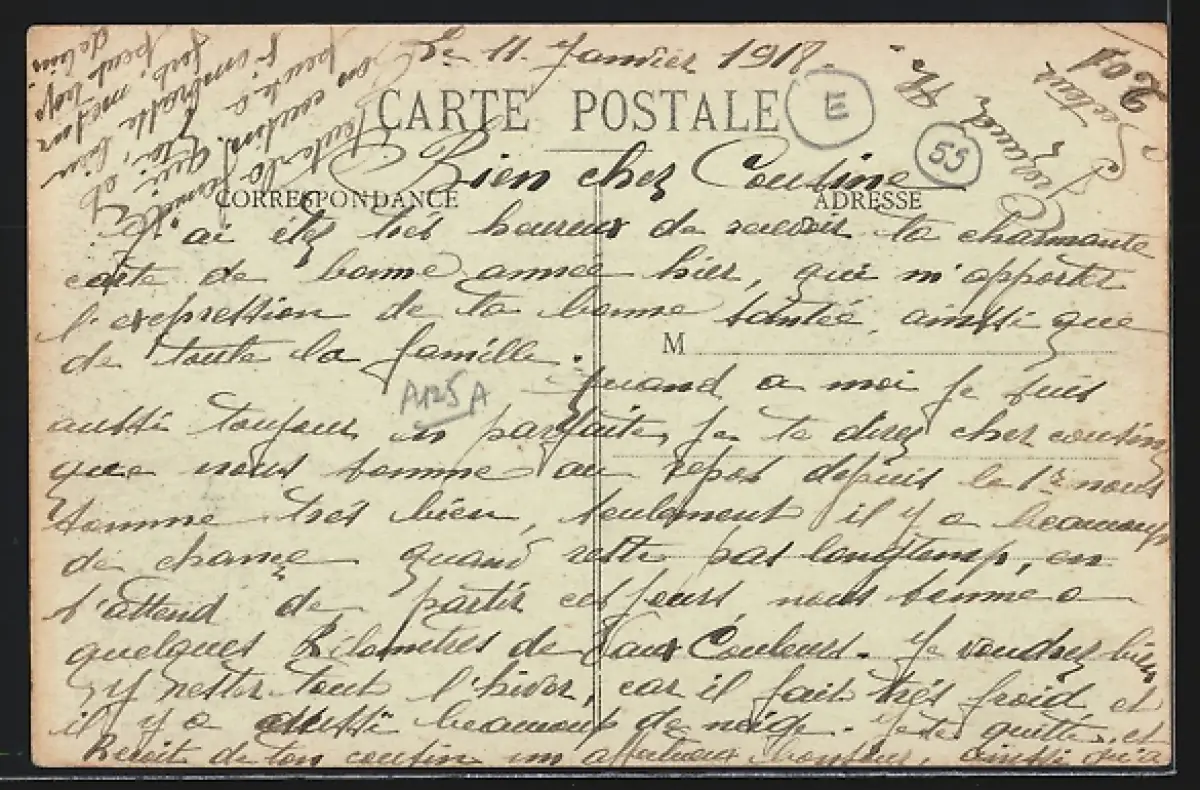 Le 11 Janvier 1918.
CARTE POSTALE
E
55
201
A125A
CORRESPONDANCE
ADRESSE
M
Bien chez Cousine
J'ai étez trés heureux de recevoir ta charmante
carte de bonne annee hier, qui m'apporte
l'expression de ta bonne santée, ainssi que
de toute la famille.
quand a moi je suis
aussi toujours en parfaite, je te direz cher cousine
que nous somme au repos depuis le 1er nous
somme trés bien, seulement il y a beaucoup
de chance quand reste pas longtemp, en
s'attend de partir ces jours, nous somme a
quelques Kilometres de Vaux Couleurs. Je voudrez bien
y rester tout l'hiver, car il fait trés froid et
il y a aussi beaucoup de neige. Je te quitte, et
Recoit de ton cousin un affectueux bonjour, ainssi qu'a
toute la famille
ton cousin qui
pense a